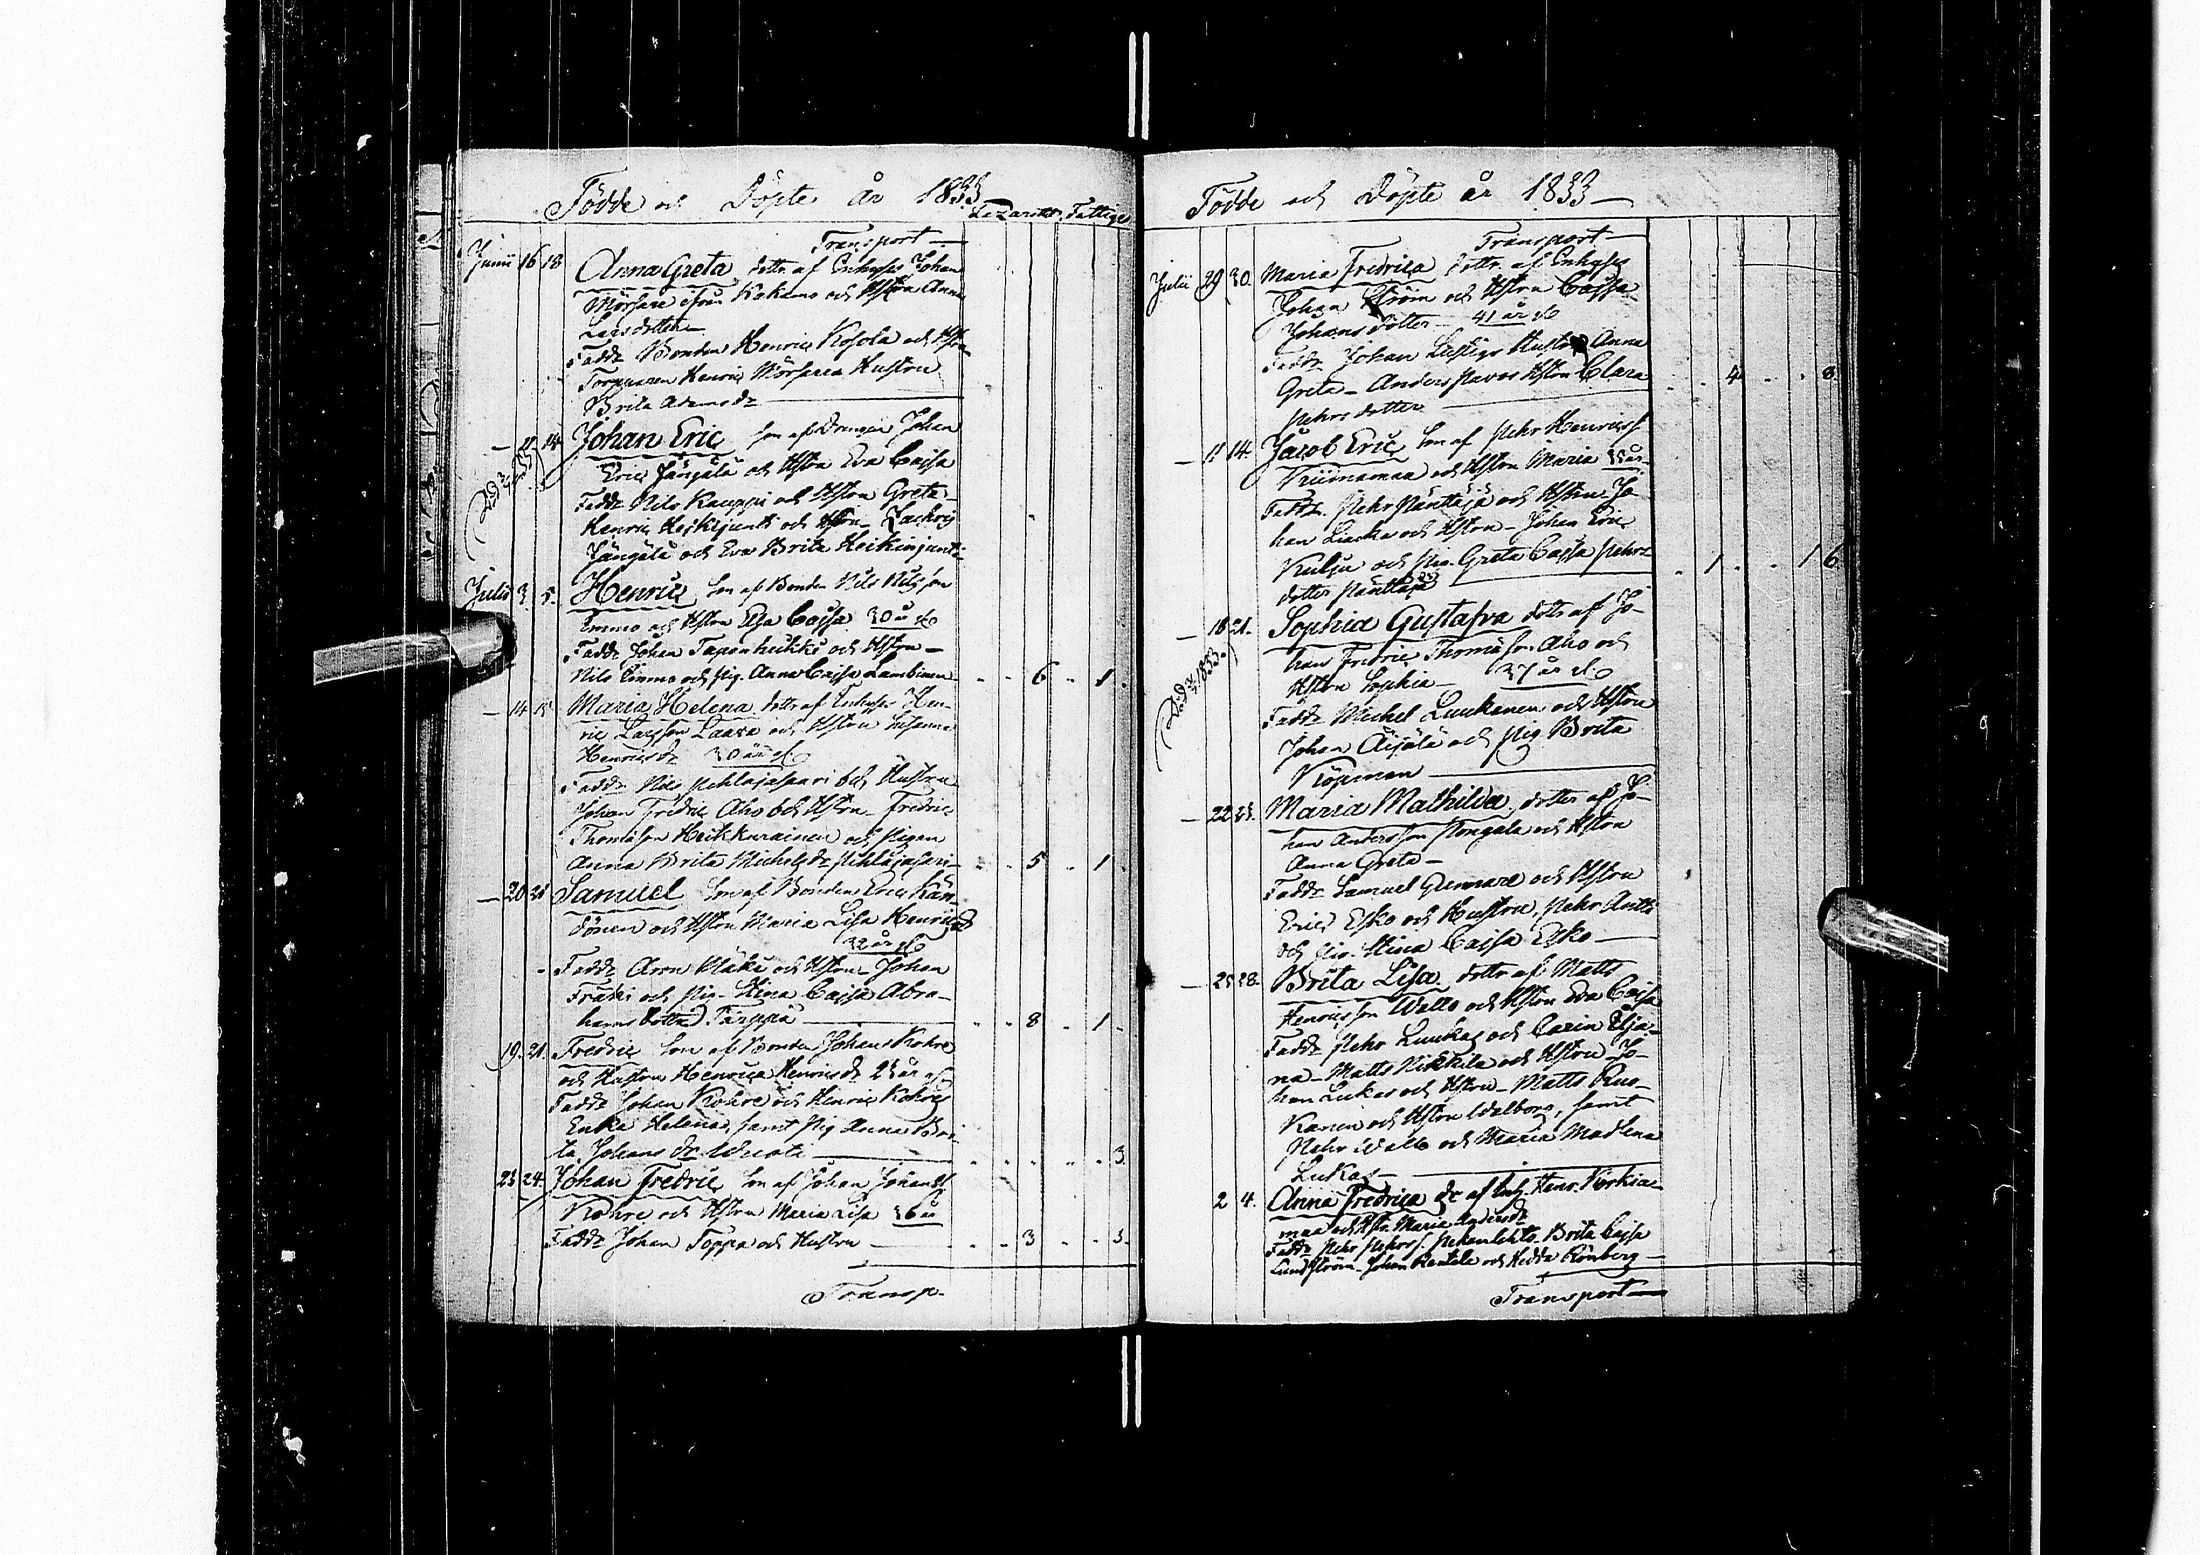 Födde och Döpte år 1833
Lazarett. Fattige
Transport
Junii 16 18 Anna Greta dottr af Enhyses Johan
Mörsare ifrån Kokemo och Hstru Anna
Larsdotter
Faddr Bonden Henric Kosola och Hstru
Torpparen Henric Mörsares Hustru
Brita Adamsdr
— 11 14 Johan Eric Son af Drängen Johan
Eric Jängälä och Hstru Eva Cajsa
Faddr Nils Kauppi och Hstru Greta
Henric Heikkijunti och Hstru Zachris
Jängälä och Eva Brita Heikinjunti
Julii 3 5. Henric Son af Bonden Nils Nilsson
Emmo och Hstru Elsa Cajsa 30 år
Faddr Johan Tapenheikki och Hstru
Nils Emmo och Pig. Anna Cajsa Lambinen 6 1
— 14 15 Maria Helena dottr af Enhyses Hen-
ric Larsson Laara och Hstru Susanna
Henricsdr 30 år
Faddr Nils Pehlajasaari och Hustru
Johan Fredric Aho och Hstru Fredric
Thomasson Heikkurainen och Pigan
Anna Brita Michelsdr Pehlajasari 5 1
— 20 21 Samuel Son af Bonden Eric Kän-
dönen och Hstru Maria Lisa Henricsdr
32 år
Faddr Aron Mäki och Hstru Johan
Frakki och Pig. Stina Cajsa Abra-
hams dotter Tärppä 8 1
19. 21. Fredric Son af Bonden Johan Kohre
och Hustru Henrica Henricsdr 25 år
Faddr Johan Kohre och Henric Kohres
Enka Helena, samt Pig Anna Bri-
ta Johans dr 3
23 24. Johan Fredric Son af Johan Johanss
Kohre och Hstru Maria Lisa 36 år
Faddr Johan Toppa och Hustru 3 3
Transp.
Födde och Döpte år 1833
Transport
Julii 29 30. Maria Fredrica dottr af Enhyses
Johan Ström och Hstru Cajsa
Johans dotter 41 år
Faddr Johan Lustigs Hustru Anna
Greta Anders Pavos Hstru Clara 4 8
Pehrs dotter
— 11 14. Jacob Eric Son af Pehr Henricss
Kriimamaa och Hstru Maria 33 år
Faddr. Pehr Pänttäjä och Hstru Jo-
han Liacka och Hstru Johan Eric
Kulju och Pig. Greta Cajsa Pehrs 1 1 6
dotter Pänttäjä
— 18 21. Sophia Gustafva dottr af Jo-
han Fredric Thomasson Aho och
Hstru Sophia 37 år
Faddr Michel Luukanen och Hstru
Johan Äijälä och Pig Brita
Köpman
— 22 25. Maria Mathilda dotter af Jo-
han Andersson Pongala och Hstru
Anna Greta
Faddr Samuel Gunnare och Hstru
Eric Esko och Hustru, Pehr Antti
och Pig. Stina Cajsa Esko
— 25 28. Brita Lisa dottr af Matts
Henricsson Wallo och Hstru Eva Cajsa
Faddr Pehr Luukas och Carin Elja-
na Matts Nikkila och Hstru Jo-
han Lukas och Hstru Matts Ruo-
Kanen och Hstru Walborg, samt
Pehr Wallo och Maria Madlena
Lukas
2 4. Anna Fredrica dr af Inh. Henr. Kirkia-
maa och Hstr. Maria Andersdr
Faddr Pehr Pehrss. Pekanlehto. Brita Cajsa
Lundström Johan Rentela och Hedda Rönberg
Transport